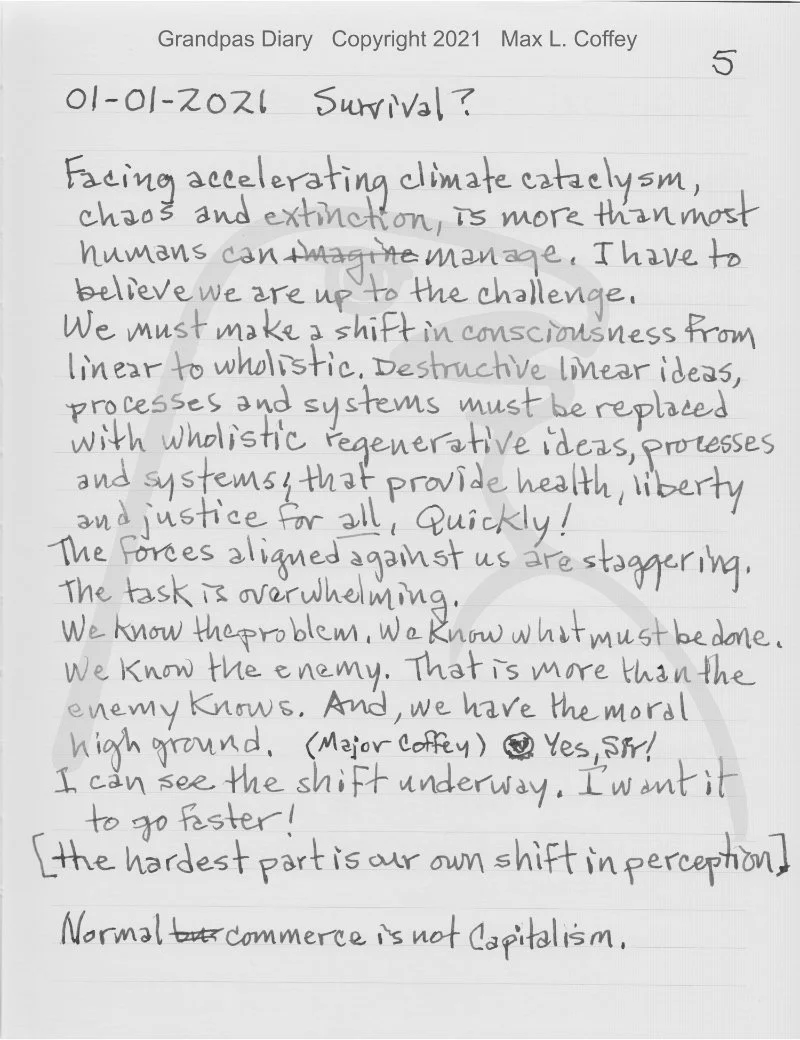 Grandpas Diary Copyright 2021 Max L. Coffey
5
01-01-2021 Survival?
Facing accelerating climate cataclysm,
chaos and extinction, is more than most
humans can imagine manage. I have to
believe we are up to the challenge.
We must make a shift in consciousness from
linear to wholistic. Destructive linear ideas,
processes and systems must be replaced
with wholistic regenerative ideas, processes
and systems, that provide health, liberty
and justice for all, Quickly!
The forces aligned against us are staggering.
The task is overwhelming.
We know the problem. We Know what must be done.
We Know the enemy. That is more than the
enemy Knows. And, we have the moral
high ground. (Major Coffey) Yes, Sir!
I can see the shift underway. I want it
to go faster!
[the hardest part is our own shift in perception]
Normal but commerce is not Capitalism.